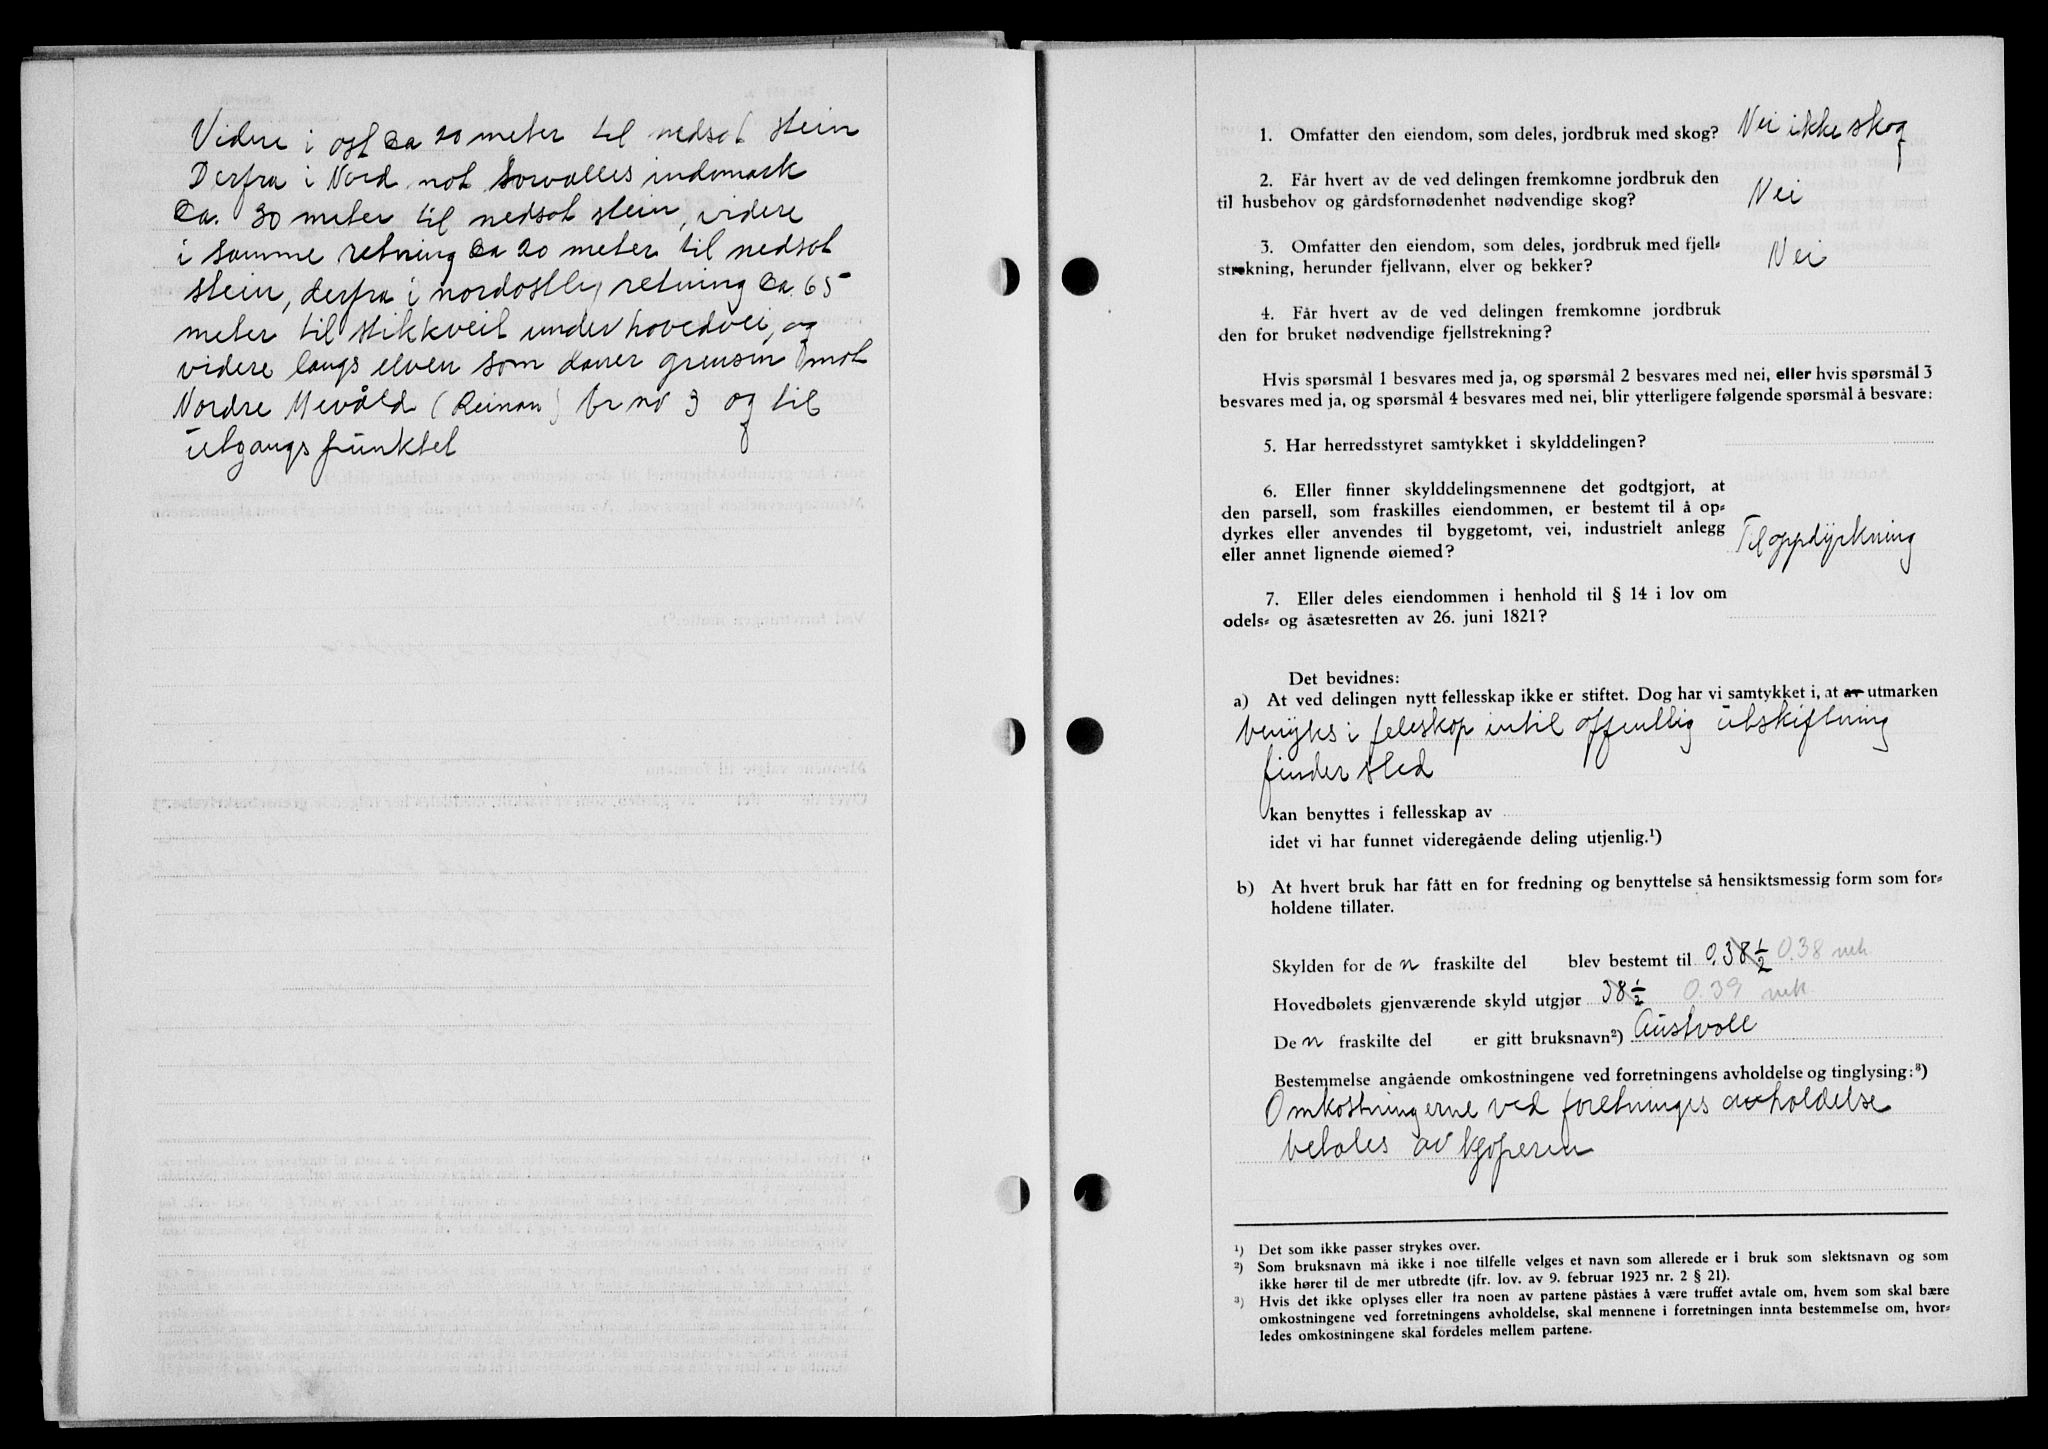 Videre i øst ca 20 meter til nedsat stein
Derfra i Nord mot Sørvolles indmark
Ca. 30 meter til nedsat stein, videre
i samme retning ca 20 meter til nedsat
stein, derfra i nordøstlig retning ca. 65
meter til stikkveit under hovedvei, og
videre langs elven som daner grensen mot
Nordre Mevåld (Reinan) br no 3 og til
utgangspunktet
1. Omfatter den eiendom, som deles, jordbruk med skog? Nei ikke skog
2. Får hvert av de ved delingen fremkomne jordbruk den
til husbehov og gårdsfornødenhet nødvendige skog? Nei
3. Omfatter den eiendom, som deles, jordbruk med fjell-
strekning, herunder fjellvann, elver og bekker? Nei
4. Får hvert av de ved delingen fremkomne jordbruk
den for bruket nødvendige fjellstrekning?
Hvis spørsmål 1 besvares med ja, og spørsmål 2 besvares med nei, eller hvis spørsmål 3
besvares med ja, og spørsmål 4 besvares med nei, blir ytterligere følgende spørsmål å besvare:
5. Har herredsstyret samtykket i skylddelingen?
6. Eller finner skylddelingsmennene det godtgjort, at
den parsell, som fraskilles eiendommen, er bestemt til å op-
dyrkes eller anvendes til byggetomt, vei, industrielt anlegg
eller annet lignende øiemed? Til oppdyrkning
7. Eller deles eiendommen i henhold til § 14 i lov om
odels- og åsætesretten av 26. juni 1821?
Det bevidnes:
a) At ved delingen nytt fellesskap ikke er stiftet. Dog har vi samtykket i, at av utmarken
benyttes i feleskap intil offentlig utskiftning
finder sted
kan benyttes i fellesskap av
idet vi har funnet videregående deling utjenlig.¹)
b) At hvert bruk har fått en for fredning og benyttelse så hensiktsmessig form som for-
holdene tillater.
Skylden for de n fraskilte del blev bestemt til 0.38½ 0.38 mrk
Hovedbølets gjenværende skyld utgjør 38½ 0.39 mrk.
De n fraskilte del er gitt bruksnavn²) Austvoll
Bestemmelse angående omkostningene ved forretningens avholdelse og tinglysing:³)
Omkostningerne ved foretninges avholdelse
betales av kjøperen
¹) Det som ikke passer strykes over.
²) Som bruksnavn må ikke i noe tilfelle velges et navn som allerede er i bruk som slektsnavn og som
ikke hører til de mer utbredte (jfr. lov. av 9. februar 1923 nr. 2 § 21).
³) Hvis det ikke oplyses eller fra noen av partene påståes å være truffet avtale om, hvem som skal bære
omkostningene ved forretningens avholdelse, skal mennene i forretningen innta bestemmelse om, hvor-
ledes omkostningene skal fordeles mellem partene.